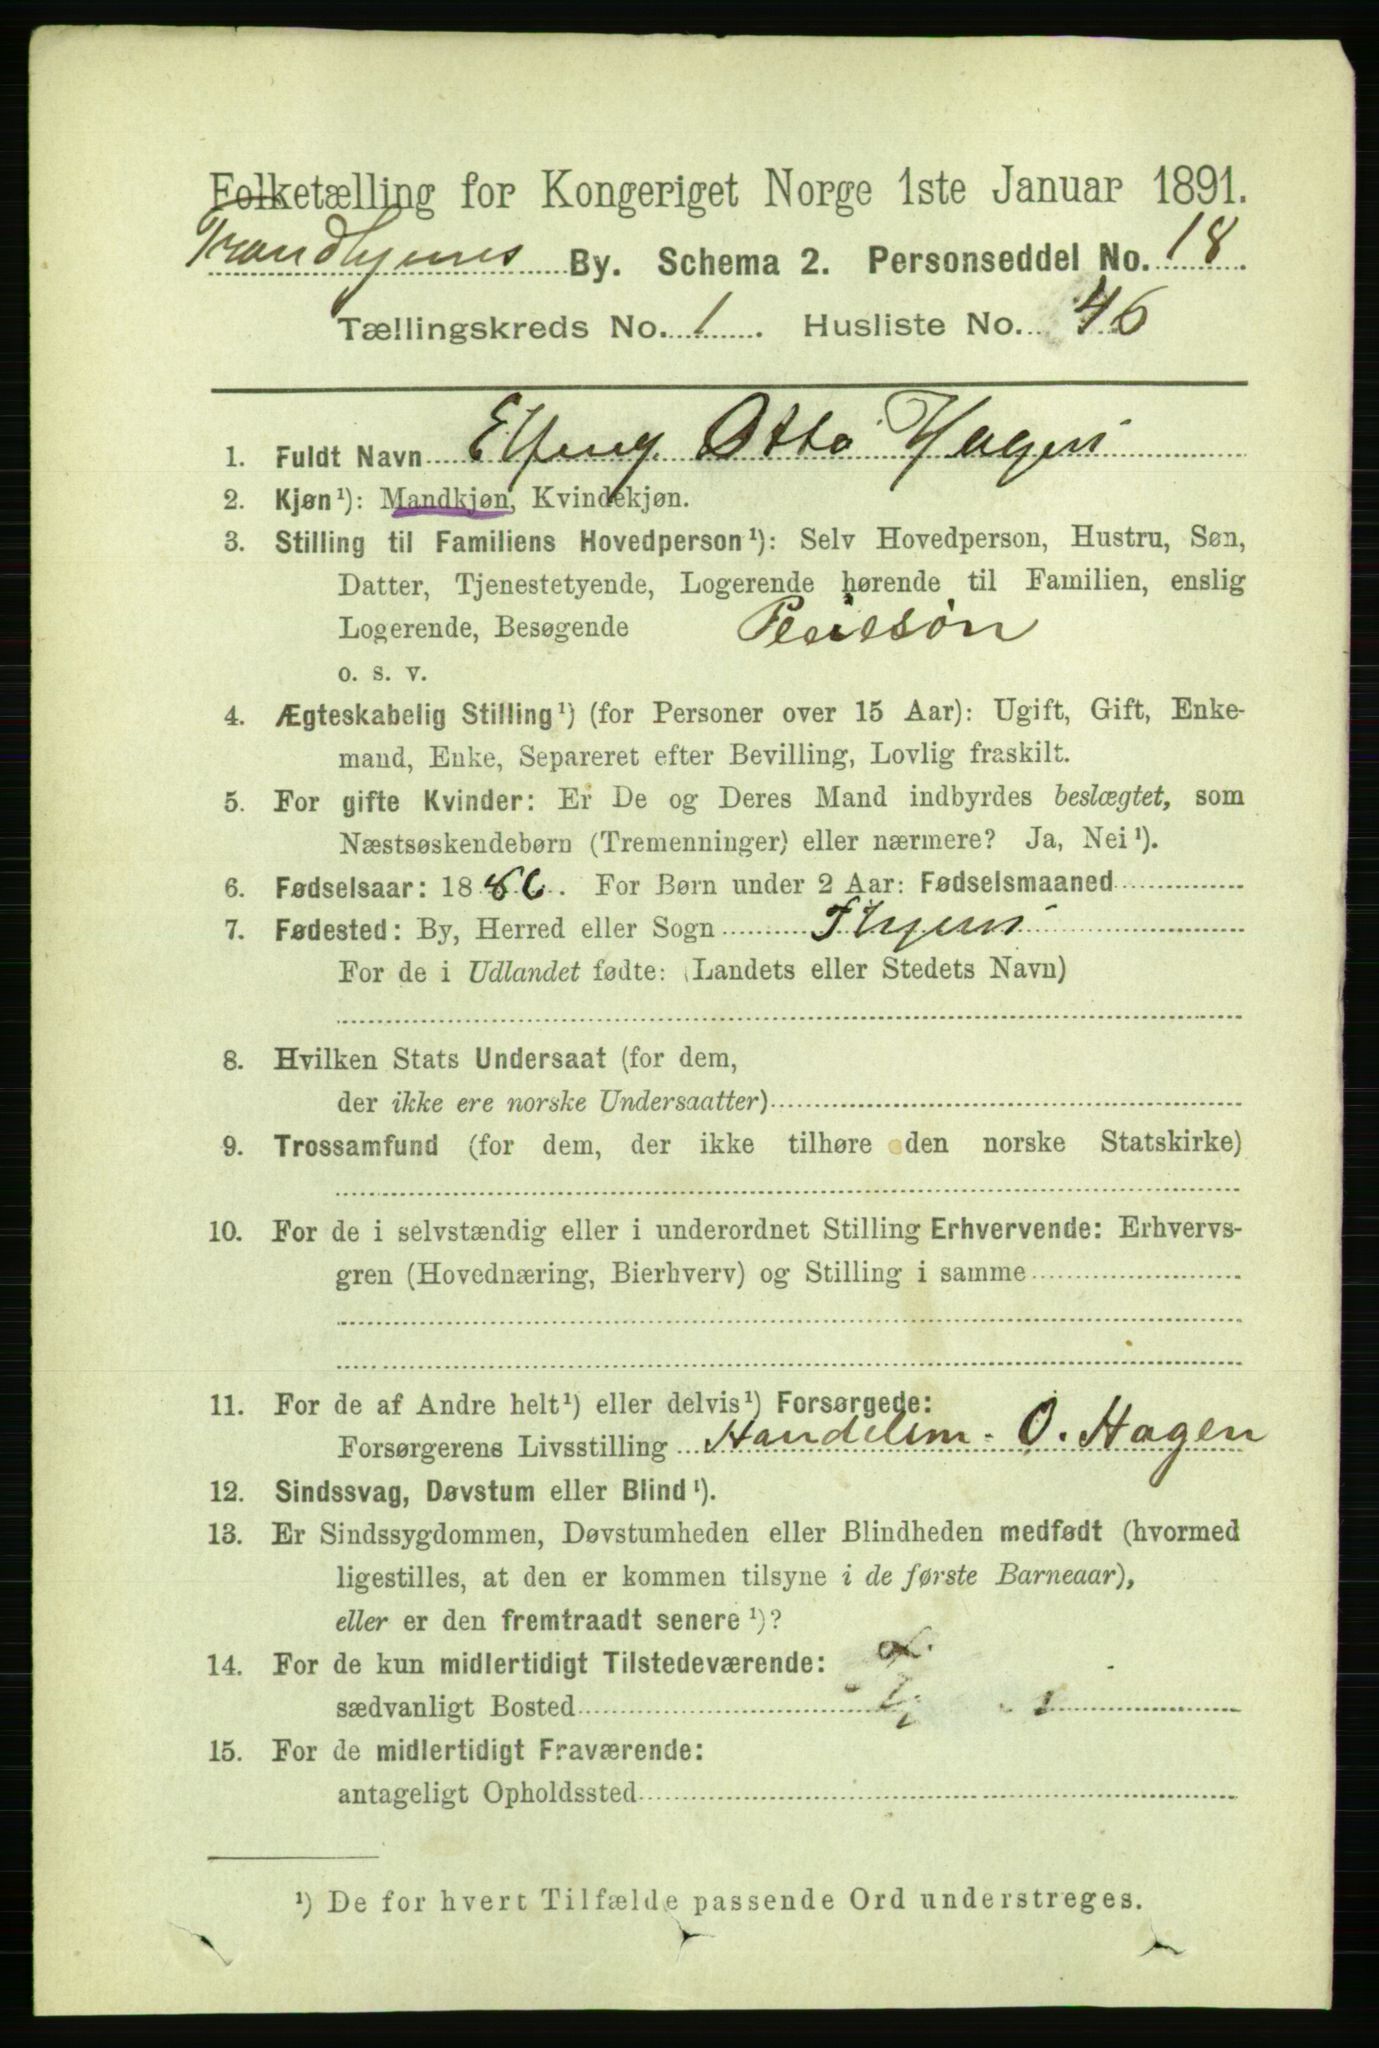 Folketælling for Kongeriget Norge 1ste Januar 1891.
Trondhjems By. Schema 2. Personseddel No. 18
Tællingskreds No. 1. Husliste No. 46
1. Fuldt Navn Otto Hagen
2. Kjøn¹): Mandkjøn, Kvindekjøn.
3. Stilling til Familiens Hovedperson¹): Selv Hovedperson, Hustru, Søn,
Datter, Tjenestetyende, Logerende hørende til Familien, enslig
Logerende, Besøgende Pleiesøn
o. s. v.
4. Ægteskabelig Stilling¹) (for Personer over 15 Aar): Ugift, Gift, Enke-
mand, Enke, Separeret efter Bevilling, Lovlig fraskilt.
5. For gifte Kvinder: Er De og Deres Mand indbyrdes beslægtet, som
Næstsøskendebørn (Tremenninger) eller nærmere? Ja, Nei¹).
6. Fødselsaar: 1886. For Børn under 2 Aar: Fødselsmaaned
7. Fødested: By, Herred eller Sogn Thjem
For de i Udlandet fødte: (Landets eller Stedets Navn)
8. Hvilken Stats Undersaat (for dem,
der ikke ere norske Undersaatter)
9. Trossamfund (for dem, der ikke tilhøre den norske Statskirke)
10. For de i selvstændig eller i underordnet Stilling Erhvervende: Erhvervs-
gren (Hovednæring, Bierhverv) og Stilling i samme
11. For de af Andre helt¹) eller delvis¹) Forsørgede:
Forsørgerens Livsstilling Handelsm. O. Hagen
12. Sindssvag, Døvstum eller Blind¹).
13. Er Sindssygdommen, Døvstumheden eller Blindheden medfødt (hvormed
ligestilles, at den er kommen tilsyne i de første Barneaar),
eller er den fremtraadt senere¹)?
14. For de kun midlertidigt Tilstedeværende:
sædvanligt Bosted
15. For de midlertidigt Fraværende:
antageligt Opholdssted
¹) De for hvert Tilfælde passende Ord understreges.